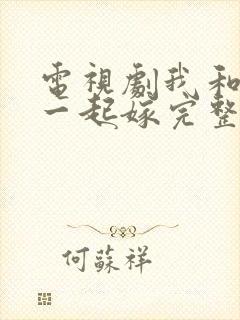 電視劇我和
一起嫁完整
何蘇祥